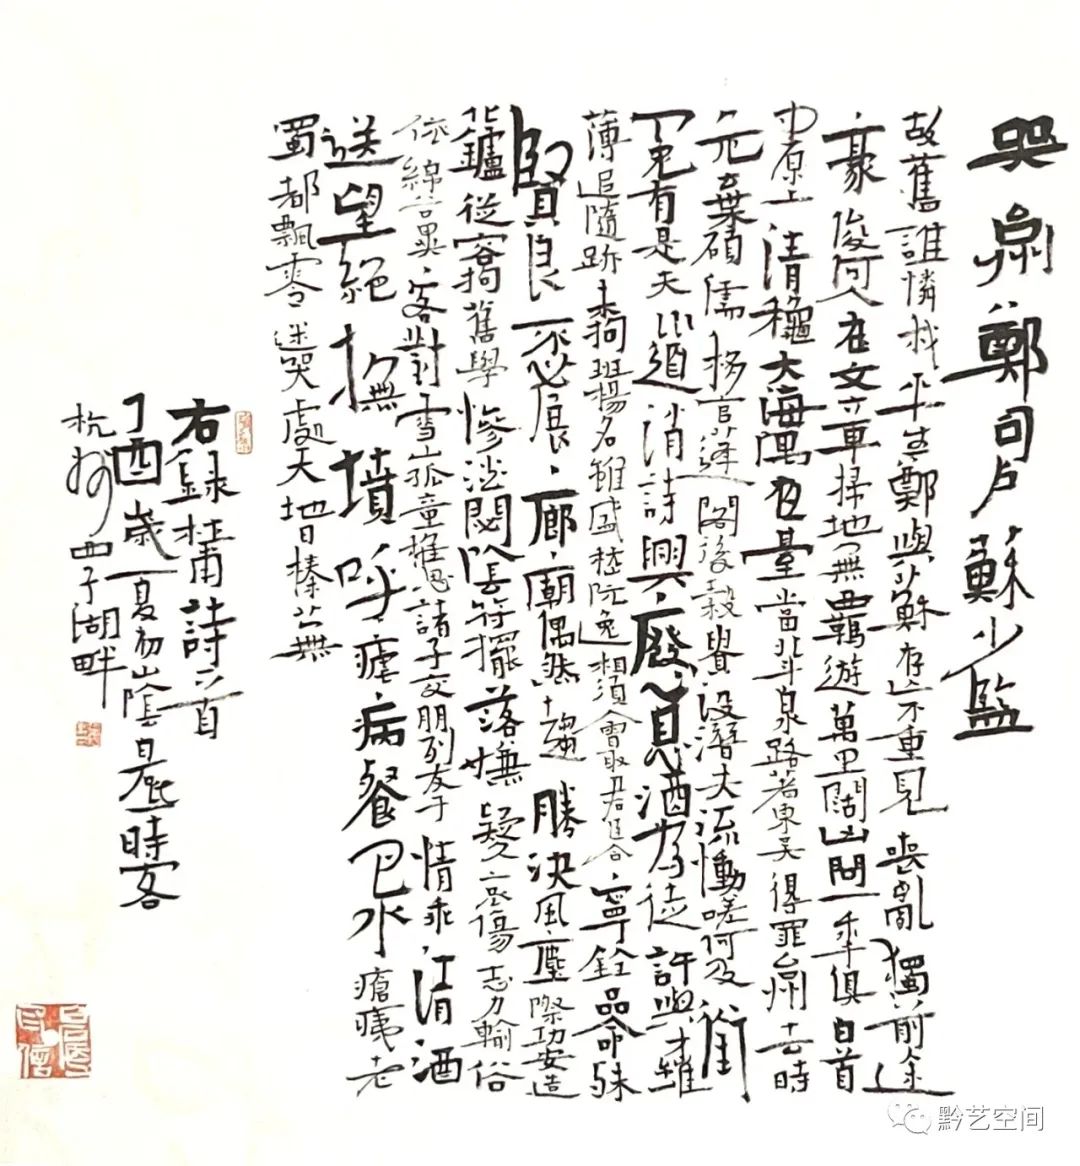 哭台州鄭司戶蘇少監
故舊誰憐我平生鄭與蘇存亡不重見喪亂獨前途
豪俊何人在文章掃地無羈遊萬里闊凶問一年俱白首
中原上清穐大海隅夜臺當北斗泉路著東吳得罪台州去時
危棄碩儒移官蓬閣後穀貴沒潛夫流慟嗟何及銜
冤有是夫道消詩興廢心息酒為徒許與才雖
薄追隨跡未拘班揚名盛嵇阮逸相須會取君臣合寧銓品命殊
賢良不必展廊廟偶然趨勝決風塵際功安造
化鑪從容拘舊學慘淡閟陰符擺落嫌疑哀傷志力輸俗
依綿谷異客對雪山孤童稚思諸子交朋列友于情乖清酒
送望絕撫墳呼瘧病餐巴水瘡痍老
蜀都飄零迷哭處天地日榛蕪
右錄杜甫詩一首
丁酉歲夏初山陰時客
杭州西子湖畔
黔艺空间